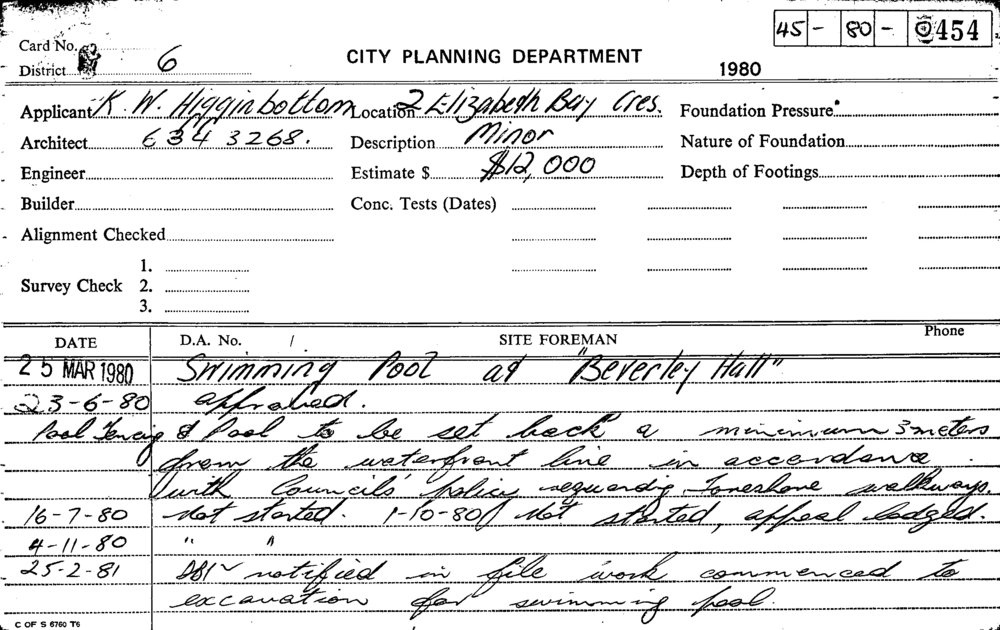 45 - 80 - 0454
Card No.
District 6
CITY PLANNING DEPARTMENT
1980
Applicant K. W. Higginbottom Location 2 Elizabeth Bay Cres. Foundation Pressure
Architect 6343268. Description Minor Nature of Foundation
Engineer Estimate $ $12,000 Depth of Footings
Builder Conc. Tests (Dates)
Alignment Checked
1.
Survey Check 2.
3.
DATE D.A. No. / SITE FOREMAN Phone
25 MAR 1980 Swimming Pool at "Beverley Hall"
23-6-80 approved.
Pool Fencing & Pool to be set back a minimum 3 meters
from the waterfront line in accordance
with Council's policy reguarding foreshore walkways.
16-7-80 Not started. 1-10-80 Not started, appeal lodged.
4-11-80 " "
25-2-81 notified in file work commenced to
excavation for swimming pool.
C OF S 6760 T6